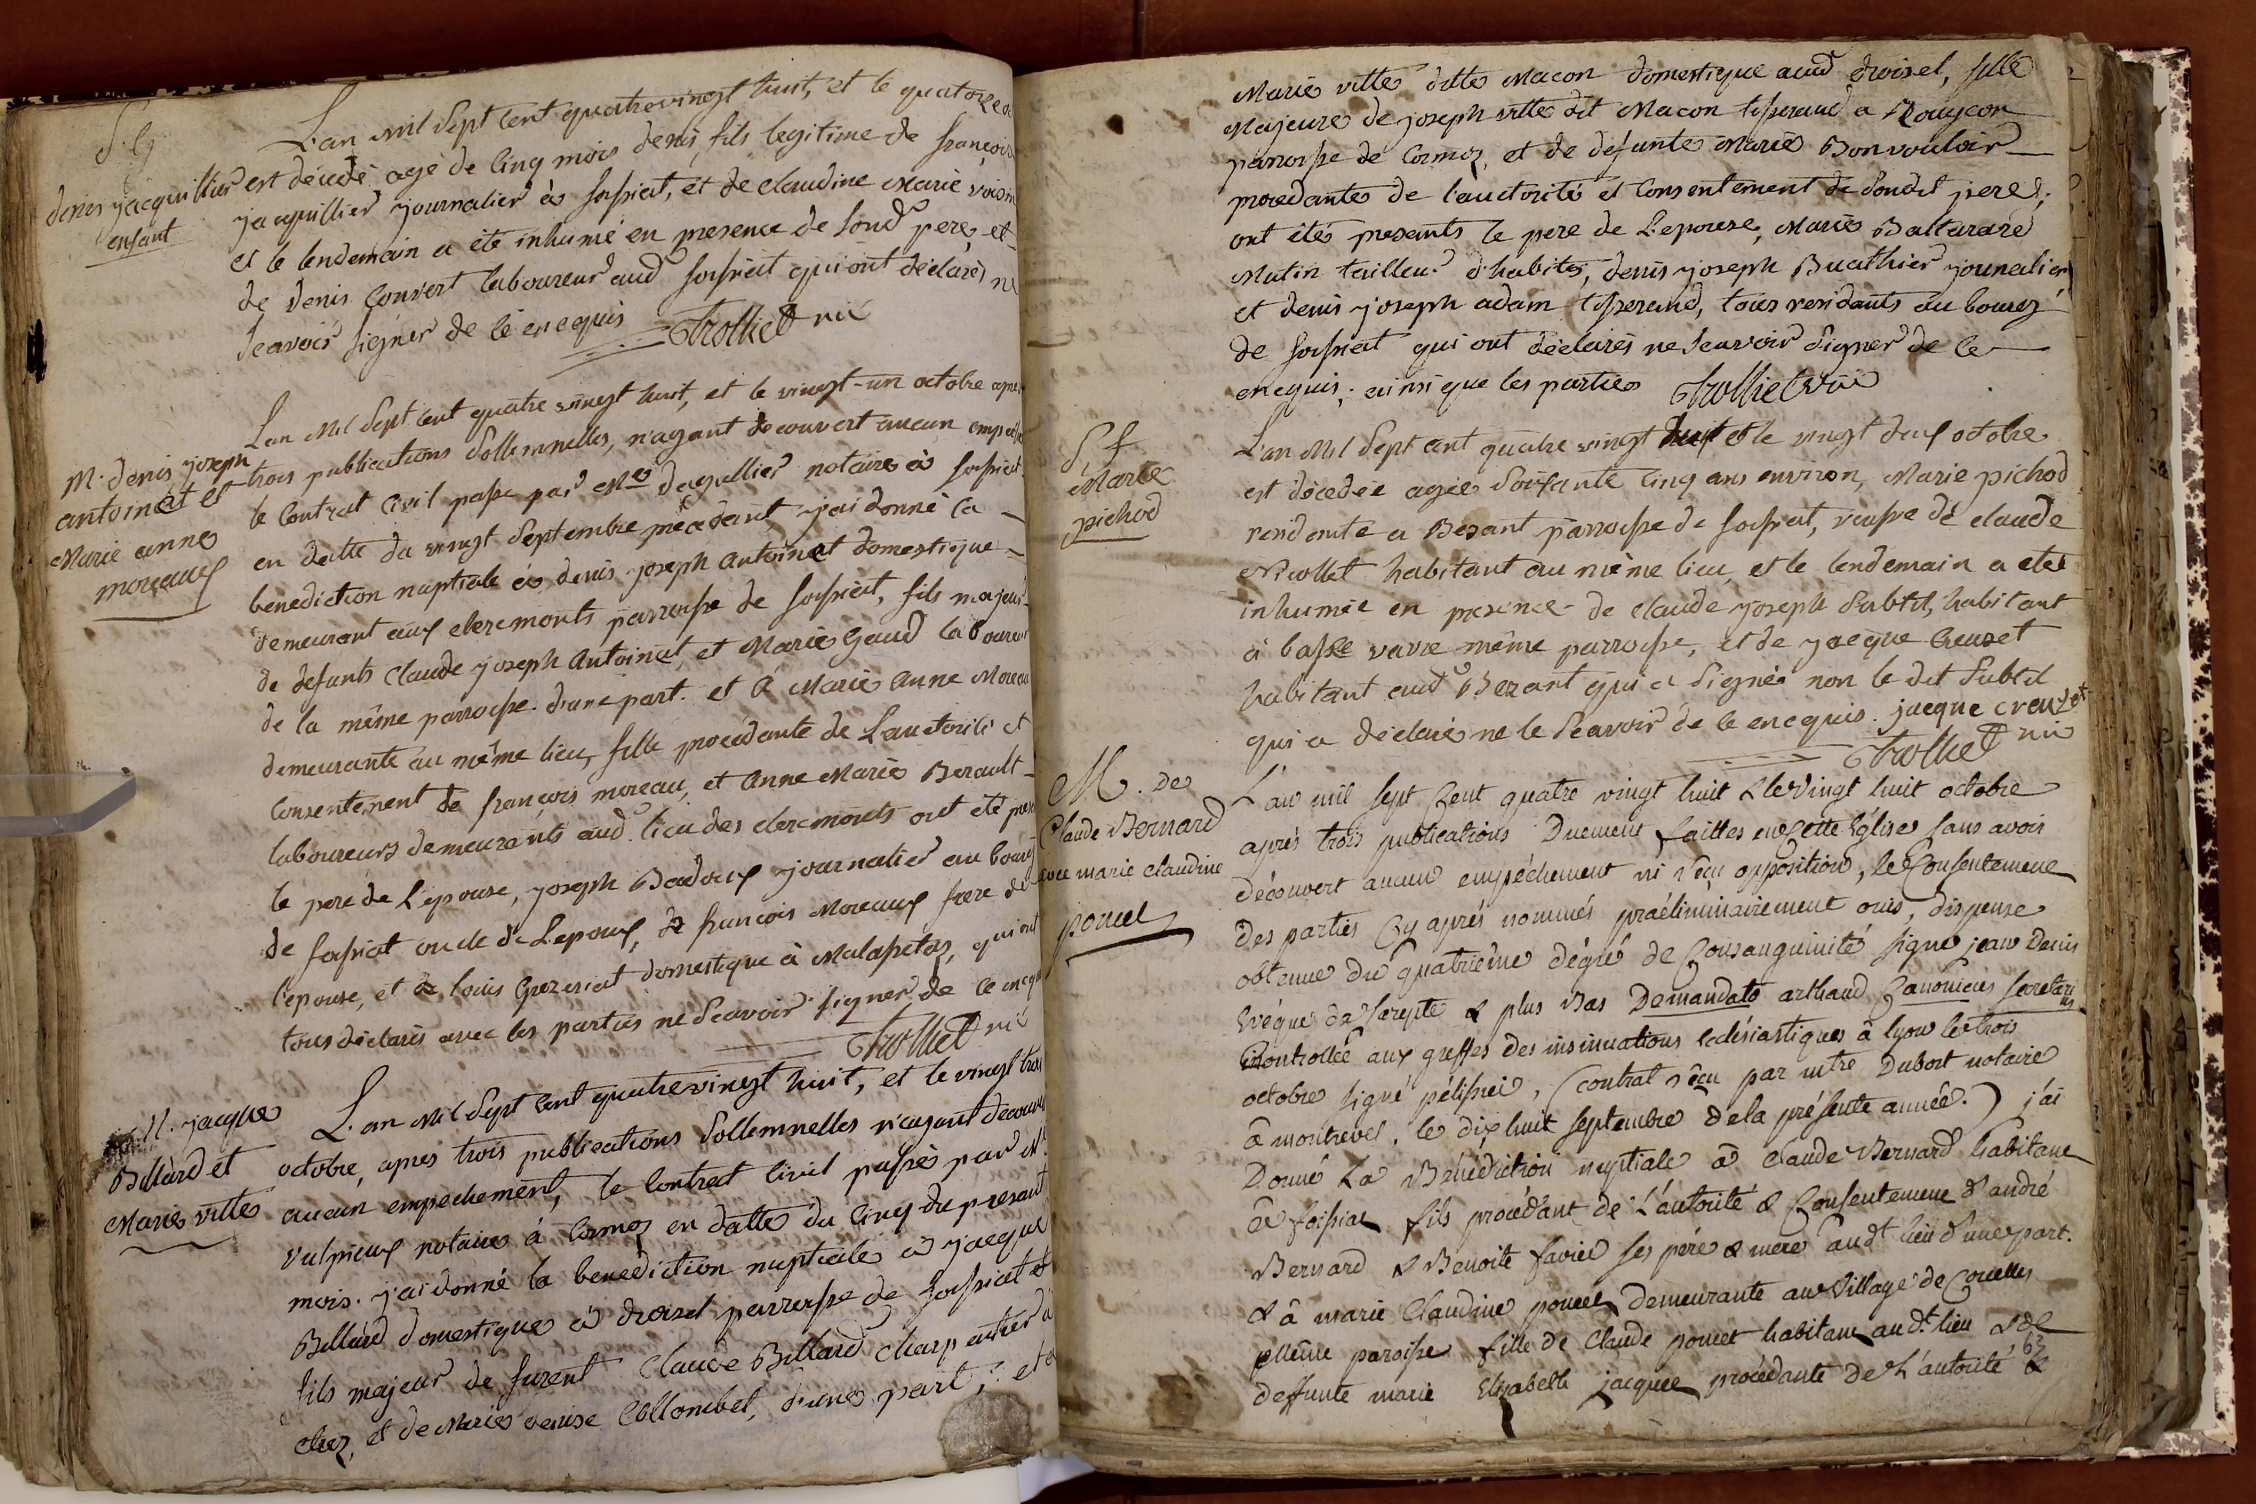 S. G.
denis jacquillier
enfant
L'an mil Sept cent quatrevingt huit, et le quatorze
est décédé agé de Cinq mois denis, fils legitime de françois
jacquillier journalier à foissiat, et de claudine Marie voisin
et le lendemain a été inhumé en presence de Soud pere, et
de denis Convert laboureur aud foissiat qui ont déclarés ne
Scavoir Signer de ce enequis Trolliet vic
M. denis joseph
antoinat et
Marie anne
moreaux
L'an Mil Sept cent quatre vingt huit, et le vingt-un octobre apres
trois publications Sollemnelles, n'ayant decouvert aucun
le Contrat Civil passe par Me daguillier notaire à foissiat
en datte du vingt Septembre precedant j'ai donné la
benediction nuptiale à denis joseph Antoinat domestique
demeurant aux cleremonts parroisse de foissiat, fils majeur
de defunts Claude joseph Antoinat, et Marie Gaud laboureur
de la même parroisse. d'une part. et à Marie Anne Moreau
demeurante au même lieu, fille procedante de L'auctorité et
Consentement de françois moreau, et Anne Marie Berault
laboureurs demeurants aud lieu des cleremonts ont été
le pere de L'epouse, joseph Badoux journalier au bourg
de foissiat oncle de L'epoux, de francois Moreaux frere de
l'epouse, et de louis Grezeriat domestique à Malapetaz, qui ont
tous déclarés avec les parties ne Scavoir Signer de ce
Trolliet vic
M. jacque
Billard et
Marie ville
L'an Mil Sept cent quatrevingt huit, et le vingt
octobre, apres trois publications Sollemnelles n'ayant
aucun empechement, le Contract Civil passés par Me
Vulpieux notaire à Cormoz en datte du Cinq du present
mois. j'ai donné la benediction nuptiale à jacque
Billard domestique à droisel parroisse de foissiat et
fils majeur de furent Claude Billard charpentier à
et de Marie Collombet, d'une part, : et
Marie ville ditte Macon domestique aud droisel, fille
Majeure de joseph ville dit Macon tisserand a
parroisse de Cormoz, et de defunte Marie Bonvouloir
procedante de l'auctorité et Consentement de Soudit pere;
ont étés presents le pere de L'epouse, Marie Baltazare
Mutin tailleur d'habits, denis joseph Buathier journalier,
et denis joseph adam tisserand, tous residants au bourg
de foissiat qui ont déclarés ne Scavoir Signer de ce
enequis; ainsi que les parties Trolliet vic
S. f
Marie
pichod
L'an Mil Sept cent quatre vingt huit et le vingt deux octobre
est décedée agée Soixante Cinq ans environ, Marie pichod
residente a Bezant parroisse de foissiat, veufve de claude
Nicollet habitant au même lieu, et le lendemain a etée
inhumée en presence de claude joseph Subtil, habitant
à basse vavre même parroisse, et de jacque Creuzet
habitant aud Bezant qui a Signé non le dit Subtil
qui a déclaré ne le Scavoir de ce enequis. jacque creuzet
Trolliet vic
M. de
Claude Bernard
avec marie claudine
poncet
L'an mil sept Cent quatre vingt huit & le Vingt huit octobre
aprés trois publications Duement faittes en Cette Eglise sans avoir
découvert aucun empéchement ni réçu opposition, le Consentement
des parties Cy aprés nommés praéliminairement ouis, dispense
obtenue du quatrième dégré de Consanguinité signé jean Denis
Evêque de Sarepte & plus bas Demandato arthaud Canonicus secretarius
Controllée aux greffes des insinuations Eclésiastiques à lyon le trois
octobre signé pélissier, (contrat réçu par mtre Dubost notaire
â montrevel, le dix huit septembre de la présente année.) j'ai
Donné La Bénédiction nuptiale â Claude Bernard habitant
â foissiat fils procédant de L'autorité & Consentement d'andré
Bernard & Benoite favier ses pére & mere audt lieu d'une part.
& â marie Claudine poncet Demeurante au Village de Corcelles
même paroisse fille de Claude poncet habitant audt lieu & de
deffunte marie Elisabelle jacquet procédante de L'autorité &
63